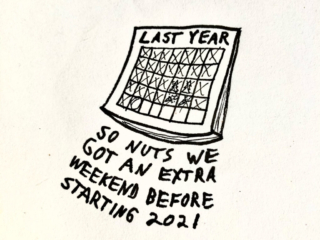 LAST YEAR
SO NUTS WE
GOT AN EXTRA
WEEKEND BEFORE
STARTING 2021